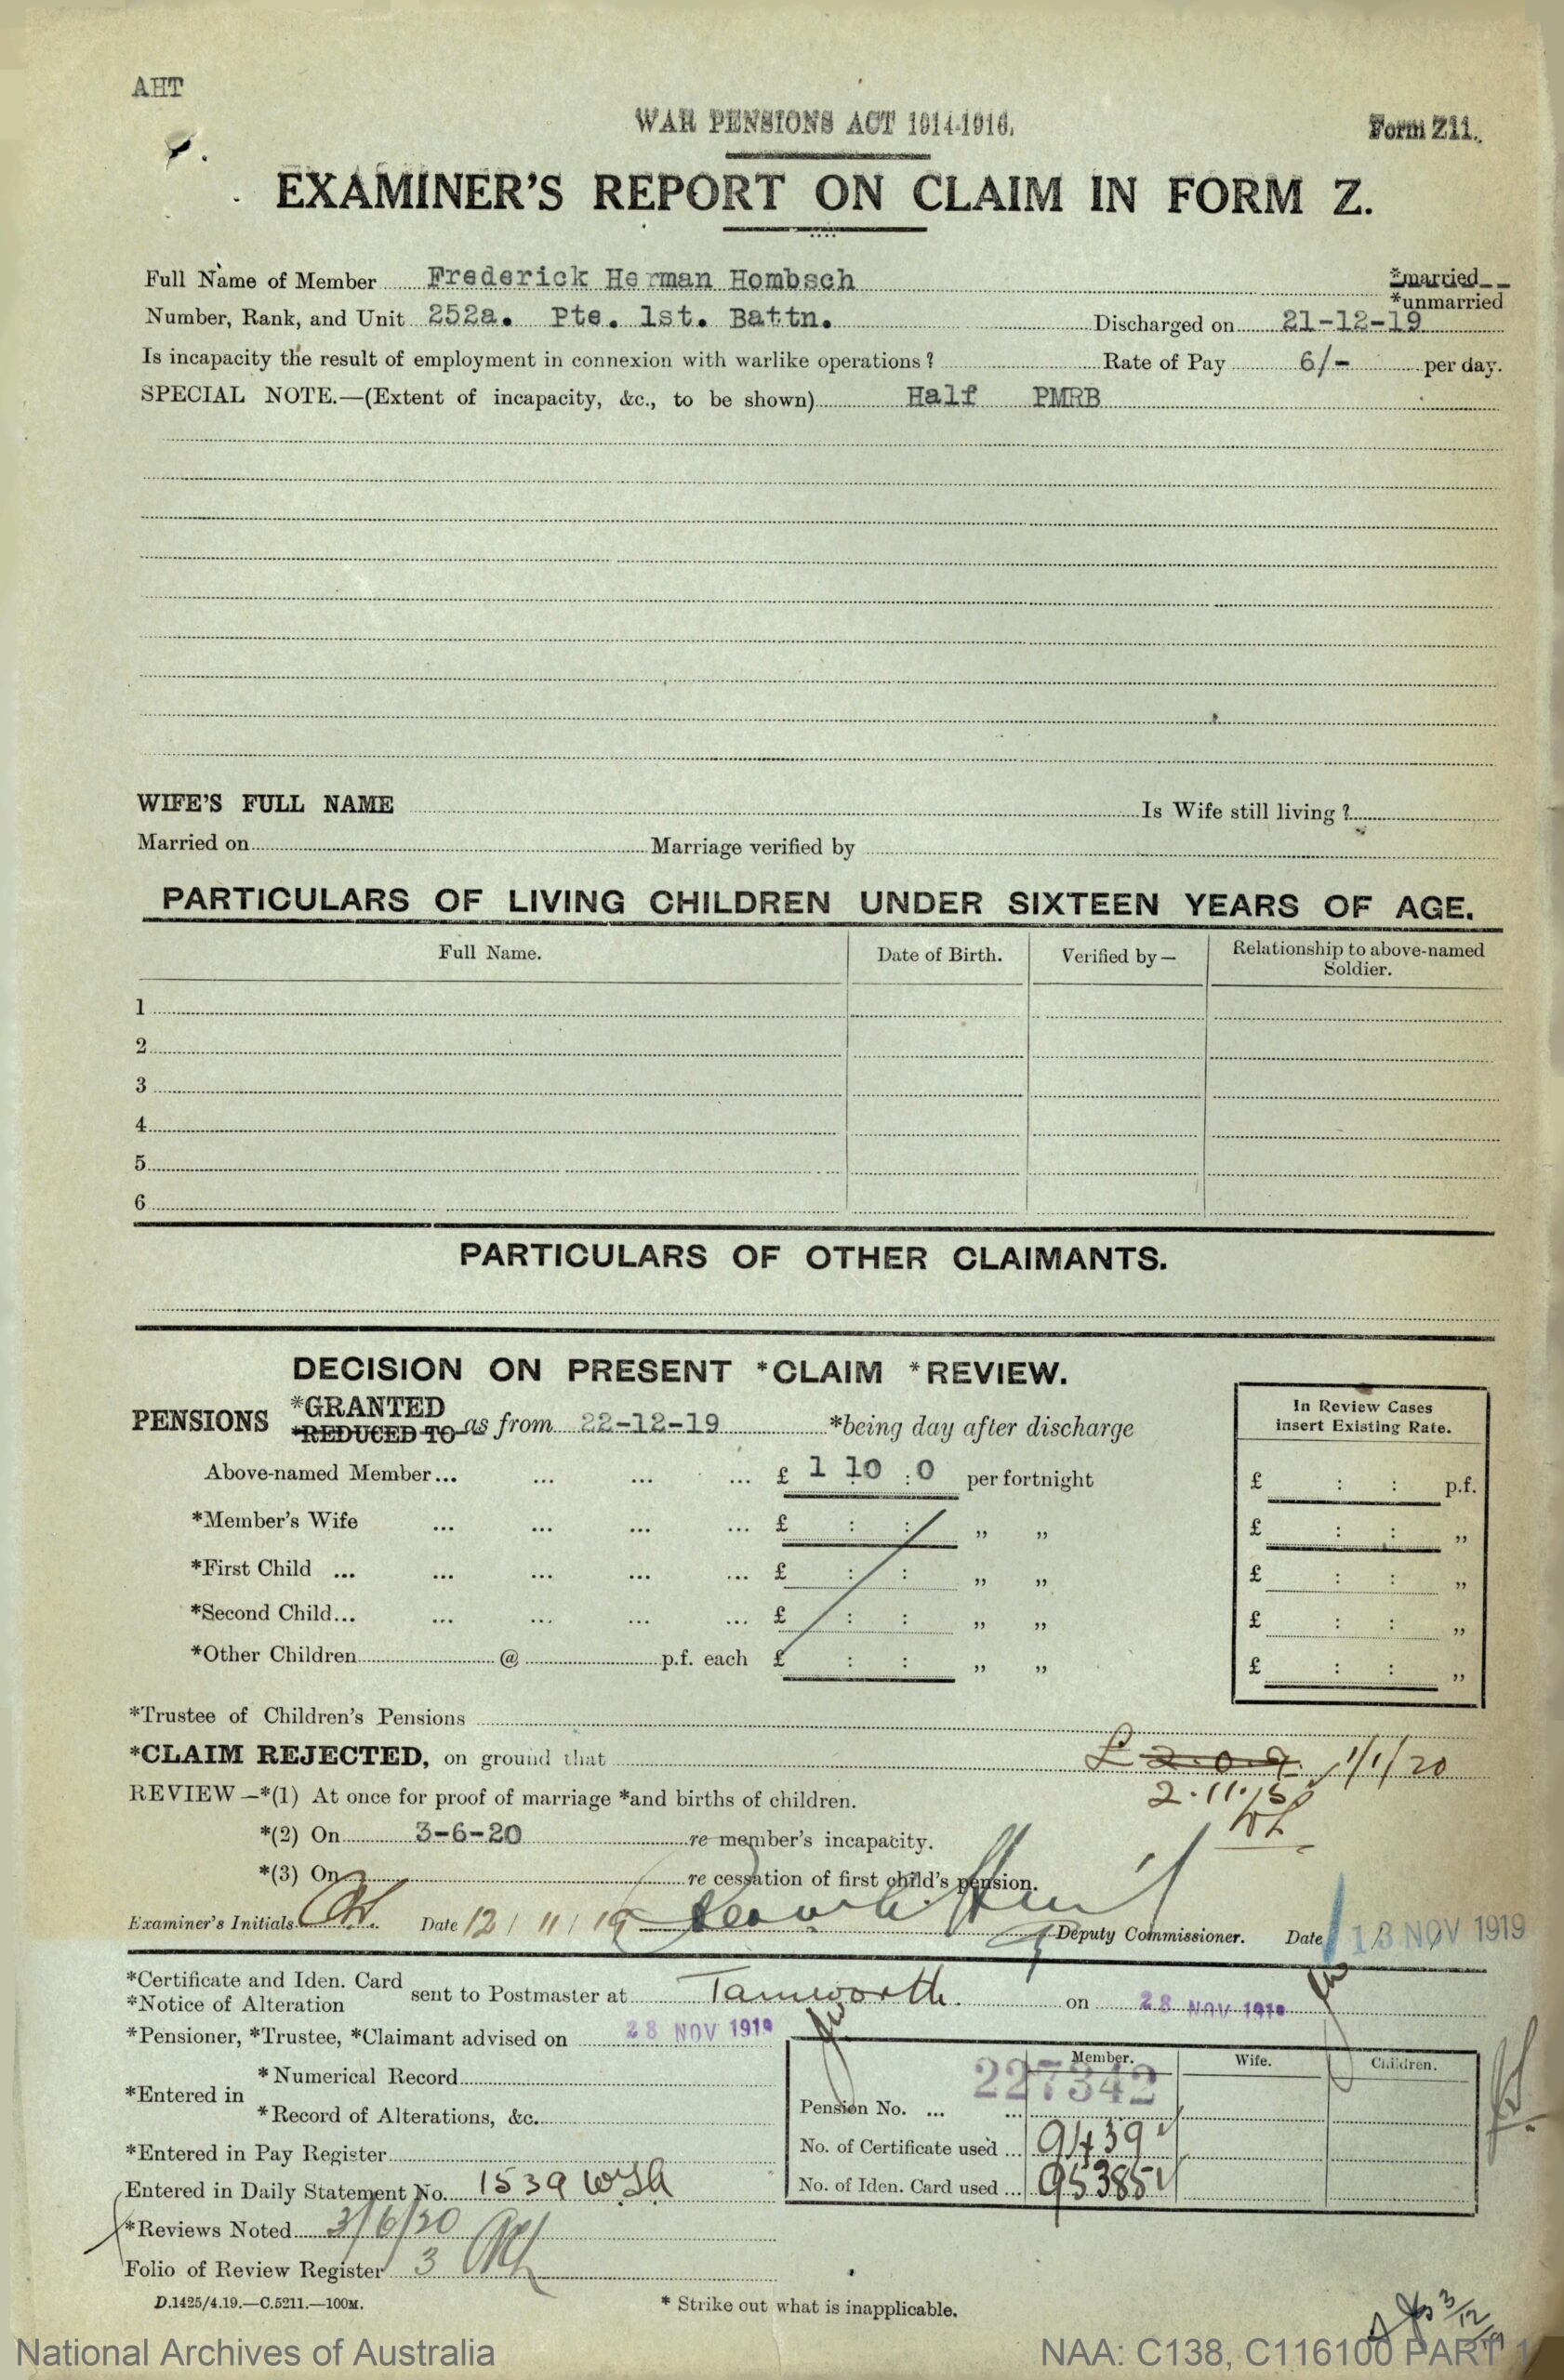 AHT
WAR PENSIONS ACT 1914-1916.
Form Z11.
EXAMINER'S REPORT ON CLAIM IN FORM Z.
Full Name of Member Frederick Herman Hombsch *married
*unmarried
Number, Rank, and Unit 252a. Pte. 1st. Battn. Discharged on 21-12-19
Is incapacity the result of employment in connexion with warlike operations? Rate of Pay 6/- per day.
SPECIAL NOTE.—(Extent of incapacity, &c., to be shown) Half PMRB
WIFE'S FULL NAME Is Wife still living?
Married on Marriage verified by
PARTICULARS OF LIVING CHILDREN UNDER SIXTEEN YEARS OF AGE.
Full Name. Date of Birth. Verified by— Relationship to above-named Soldier.
1
2
3
4
5
6
PARTICULARS OF OTHER CLAIMANTS.
DECISION ON PRESENT *CLAIM *REVIEW.
PENSIONS *GRANTED *REDUCED TO as from 22-12-19 *being day after discharge
In Review Cases
insert Existing Rate.
Above-named Member... ... ... ... £ 1 10 : 0 per fortnight £ : : p.f.
*Member's Wife ... ... ... ... £ : : ,, ,, £ : : ,,
*First Child ... ... ... ... ... £ : : ,, ,, £ : : ,,
*Second Child... ... ... ... ... £ : : ,, ,, £ : : ,,
*Other Children @ p.f. each £ : : ,, ,, £ : : ,,
*Trustee of Children's Pensions
*CLAIM REJECTED, on ground that £ 1/1/20
REVIEW—*(1) At once for proof of marriage *and births of children. 2.11.
*(2) On 3-6-20 re member's incapacity.
*(3) On re cessation of first child's pension.
Examiner's Initials Date 12/11/19 Deputy Commissioner. Date 13 NOV 1919
*Certificate and Iden. Card
*Notice of Alteration sent to Postmaster at Tamworth. on 28 NOV 1919
*Pensioner, *Trustee, *Claimant advised on 28 NOV 1919
Member. Wife. Children.
*Entered in *Numerical Record
*Record of Alterations, &c.
Pension No. ... ... 227342
No. of Certificate used ... 91439
No. of Iden. Card used ... 95385
*Entered in Pay Register
Entered in Daily Statement No. 1539
*Reviews Noted 3/6/20
Folio of Review Register 3
D.1425/4.19.—C.5211.—100M.
* Strike out what is inapplicable.
3/12/19
National Archives of Australia
NAA: C138, C116100 PART 1